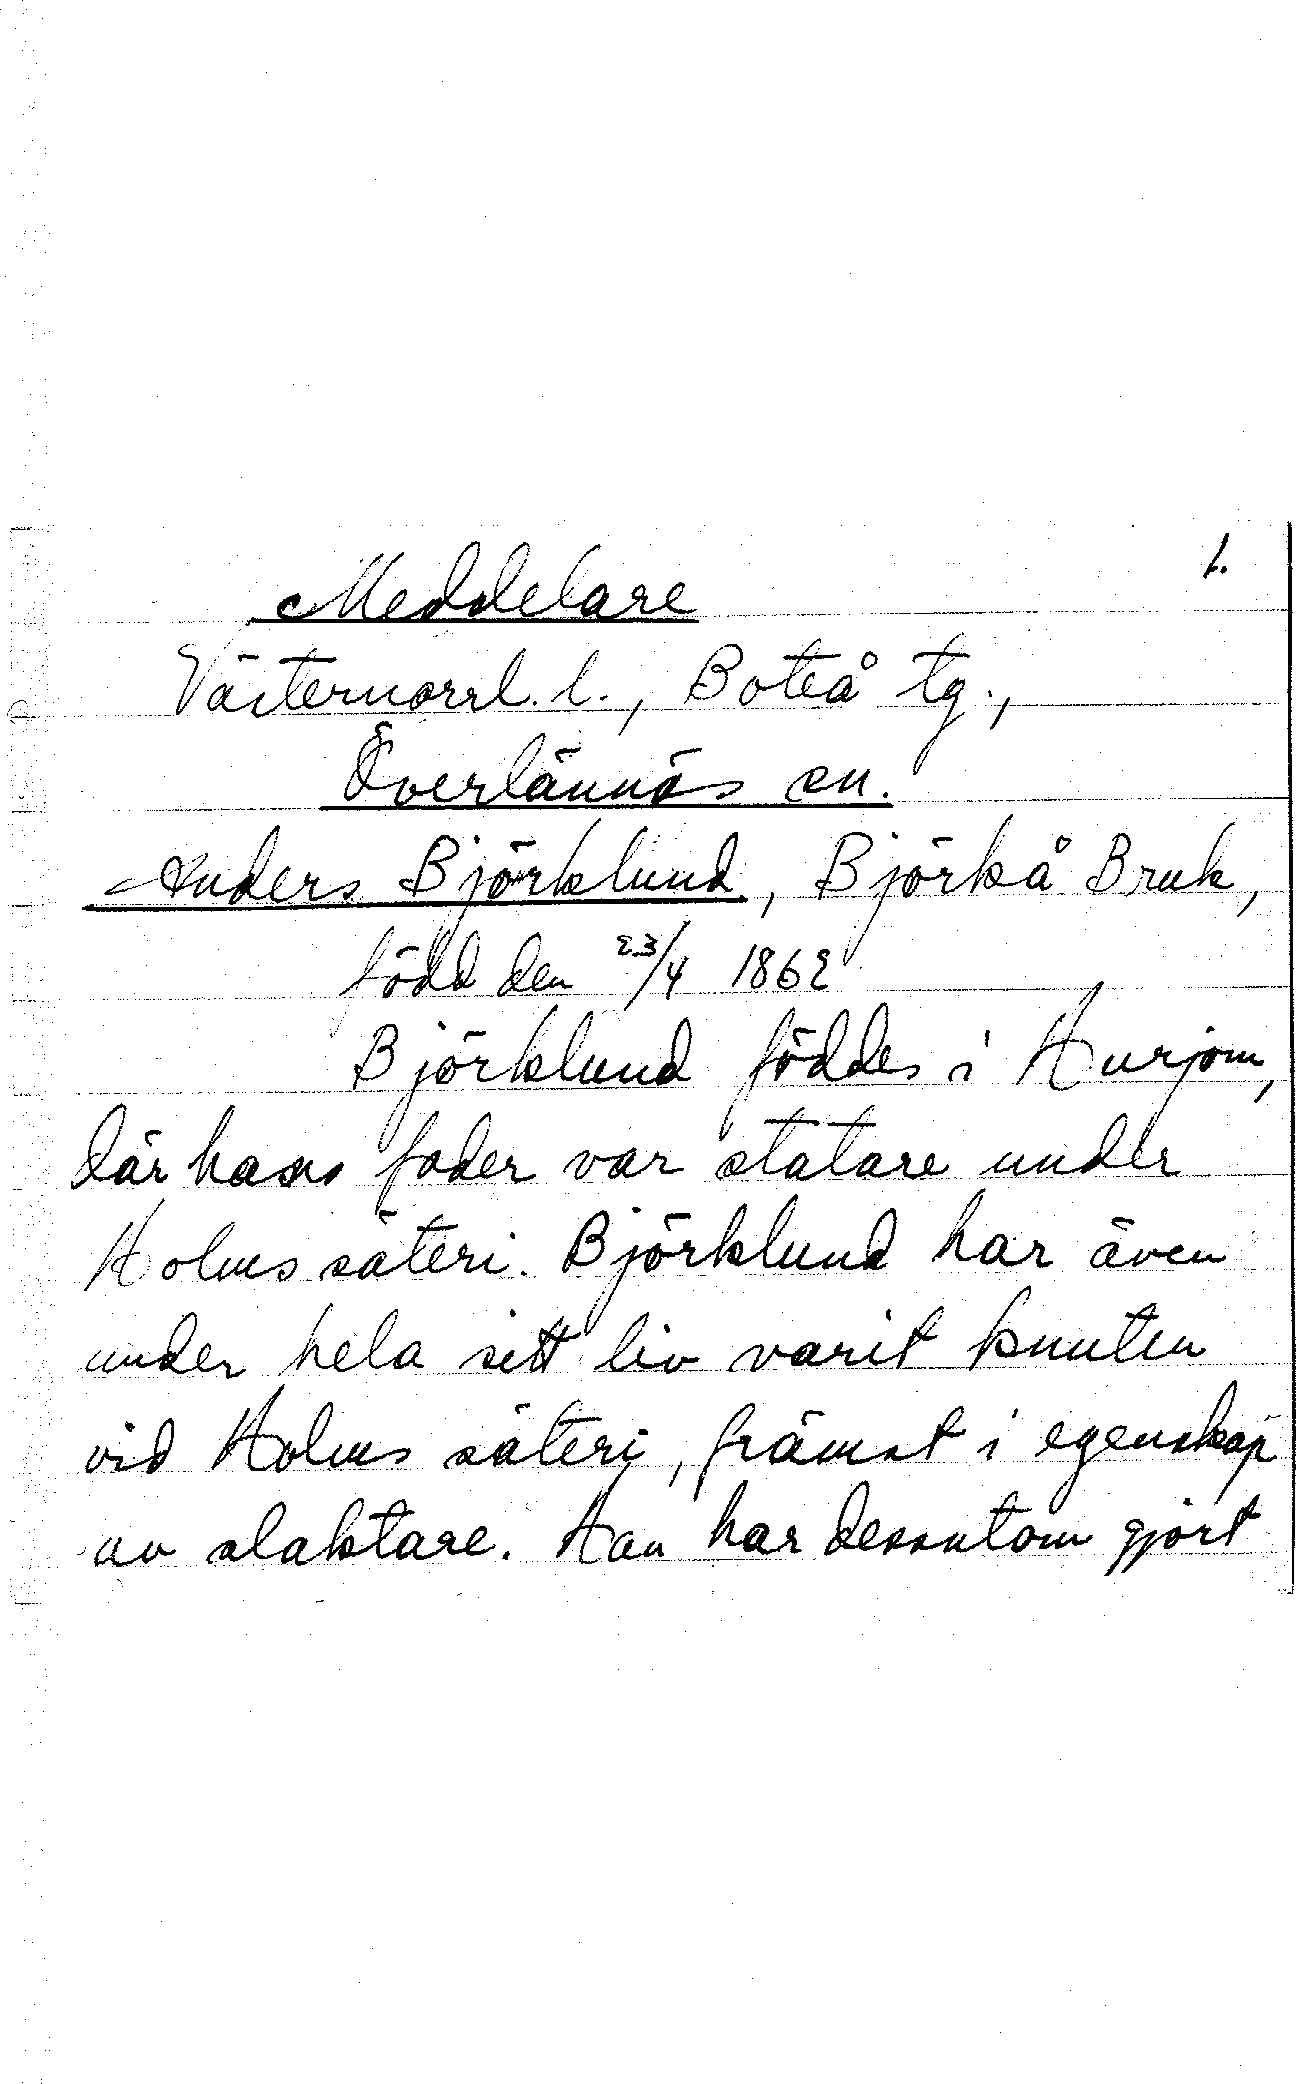 1.
Meddelare
Västernorrl. l., Boteå tg.,
Överlännäs sn.
Anders Björklund, Björkå Bruk,
född den 23/4 1862
Björklund föddes i Hurjom,
där hans fader var statare under
Holms säteri. Björklund har även
under hela sitt liv varit knuten
vid Holms säteri, främst i egenskap
av slaktare. Han har dessutom gjort